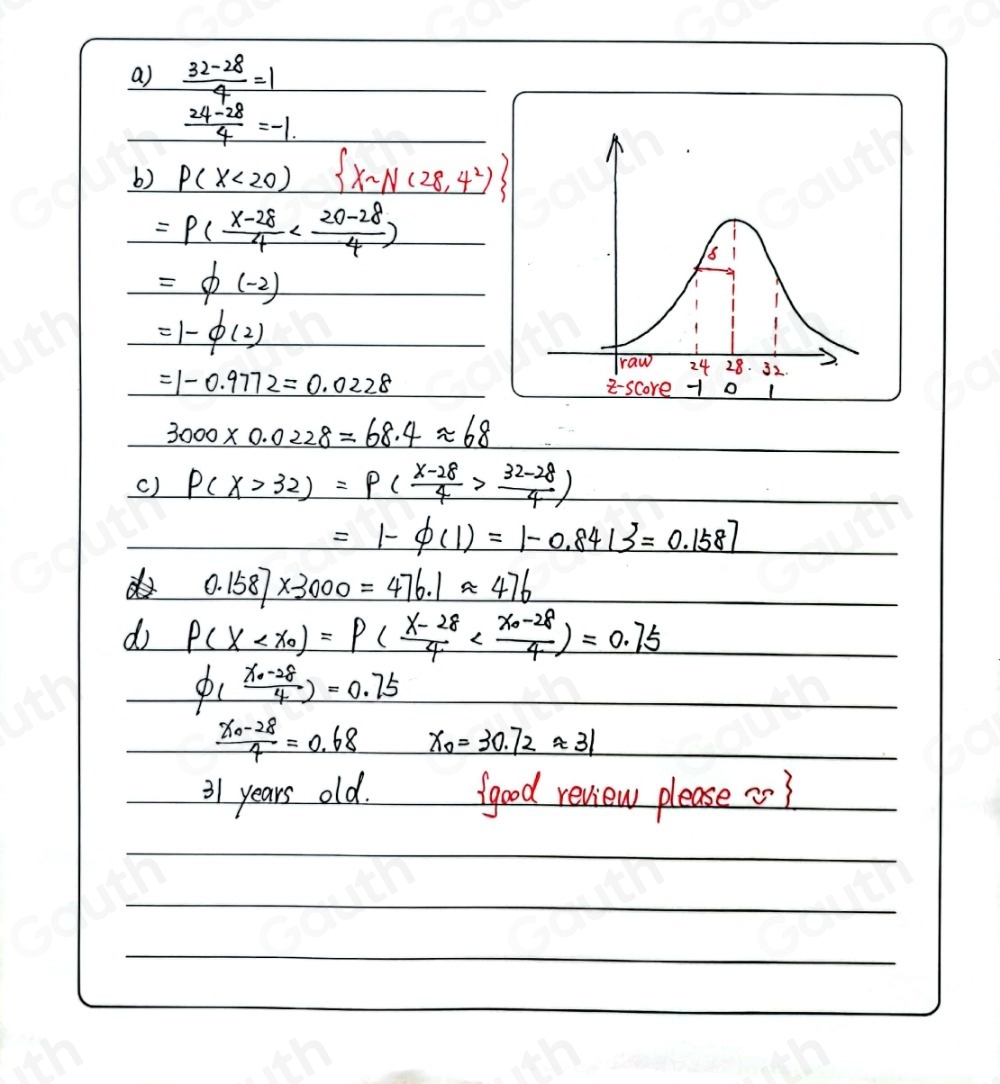 a) (32-28)/4 = 1
(24-28)/4 = -1.
b) P(X<20) {X~N(28,4²)}
= P((X-28)/4 < (20-28)/4)
= ϕ(-2)
= 1-ϕ(2)
= 1-0.9772 = 0.0228
3000 × 0.0228 = 68.4 ≈ 68
δ
raw 24 28. 32.
z-score -1 0 1
c) P(X>32) = P((X-28)/4 > (32-28)/4)
= 1-ϕ(1) = 1-0.8413 = 0.1587
0.1587 × 3000 = 476.1 ≈ 476
d) P(X<x₀) = P((X-28)/4 < (x₀-28)/4) = 0.75
ϕ((x₀-28)/4) = 0.75
(x₀-28)/4 = 0.68 x₀ = 30.72 ≈ 31
31 years old. {good review please}
Gauth